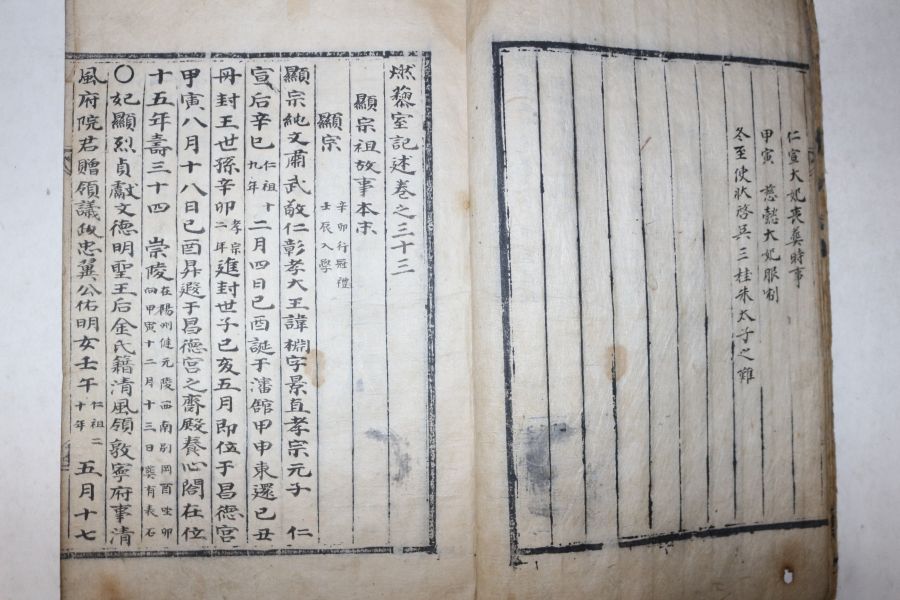 仁宣大妃喪葬時事
甲寅 慈懿大妃服制
冬至使狀啓吳三桂朱太子之難
燃藜室記述卷之三十三
顯宗祖故事本末
顯宗 辛卯行冠禮
壬辰入學
顯宗純文肅武敬仁彰孝大王諱棩字景直孝宗元子 仁
宣后辛巳 仁祖十
九年 二月四日己酉誕于瀋館甲申東還己丑
冊封王世孫辛卯 孝宗
二年 進封世子己亥五月卽位于昌德宮
甲寅八月十八日己酉昇遐于昌德宮之齋殿養心閤在位
十五年壽三十四 崇陵 在楊州健元陵西南別岡酉坐卯
向甲寅十二月十三日葬有表石
○妃顯烈貞獻文德明聖王后金氏籍清風領敦寧府事清
風府院君贈領議政忠翼公佑明女壬午 仁祖二
十年 五月十七